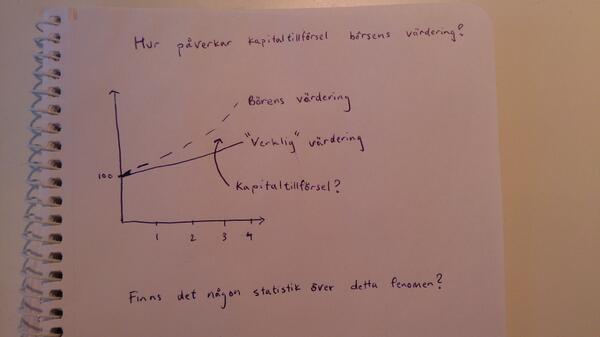 Hur påverkar kapitaltillförsel börsens värdering?
Börens värdering
"Verklig" värdering
Kapitaltillförsel?
100
1 2 3 4
Finns det någon statistik över detta fenomen?